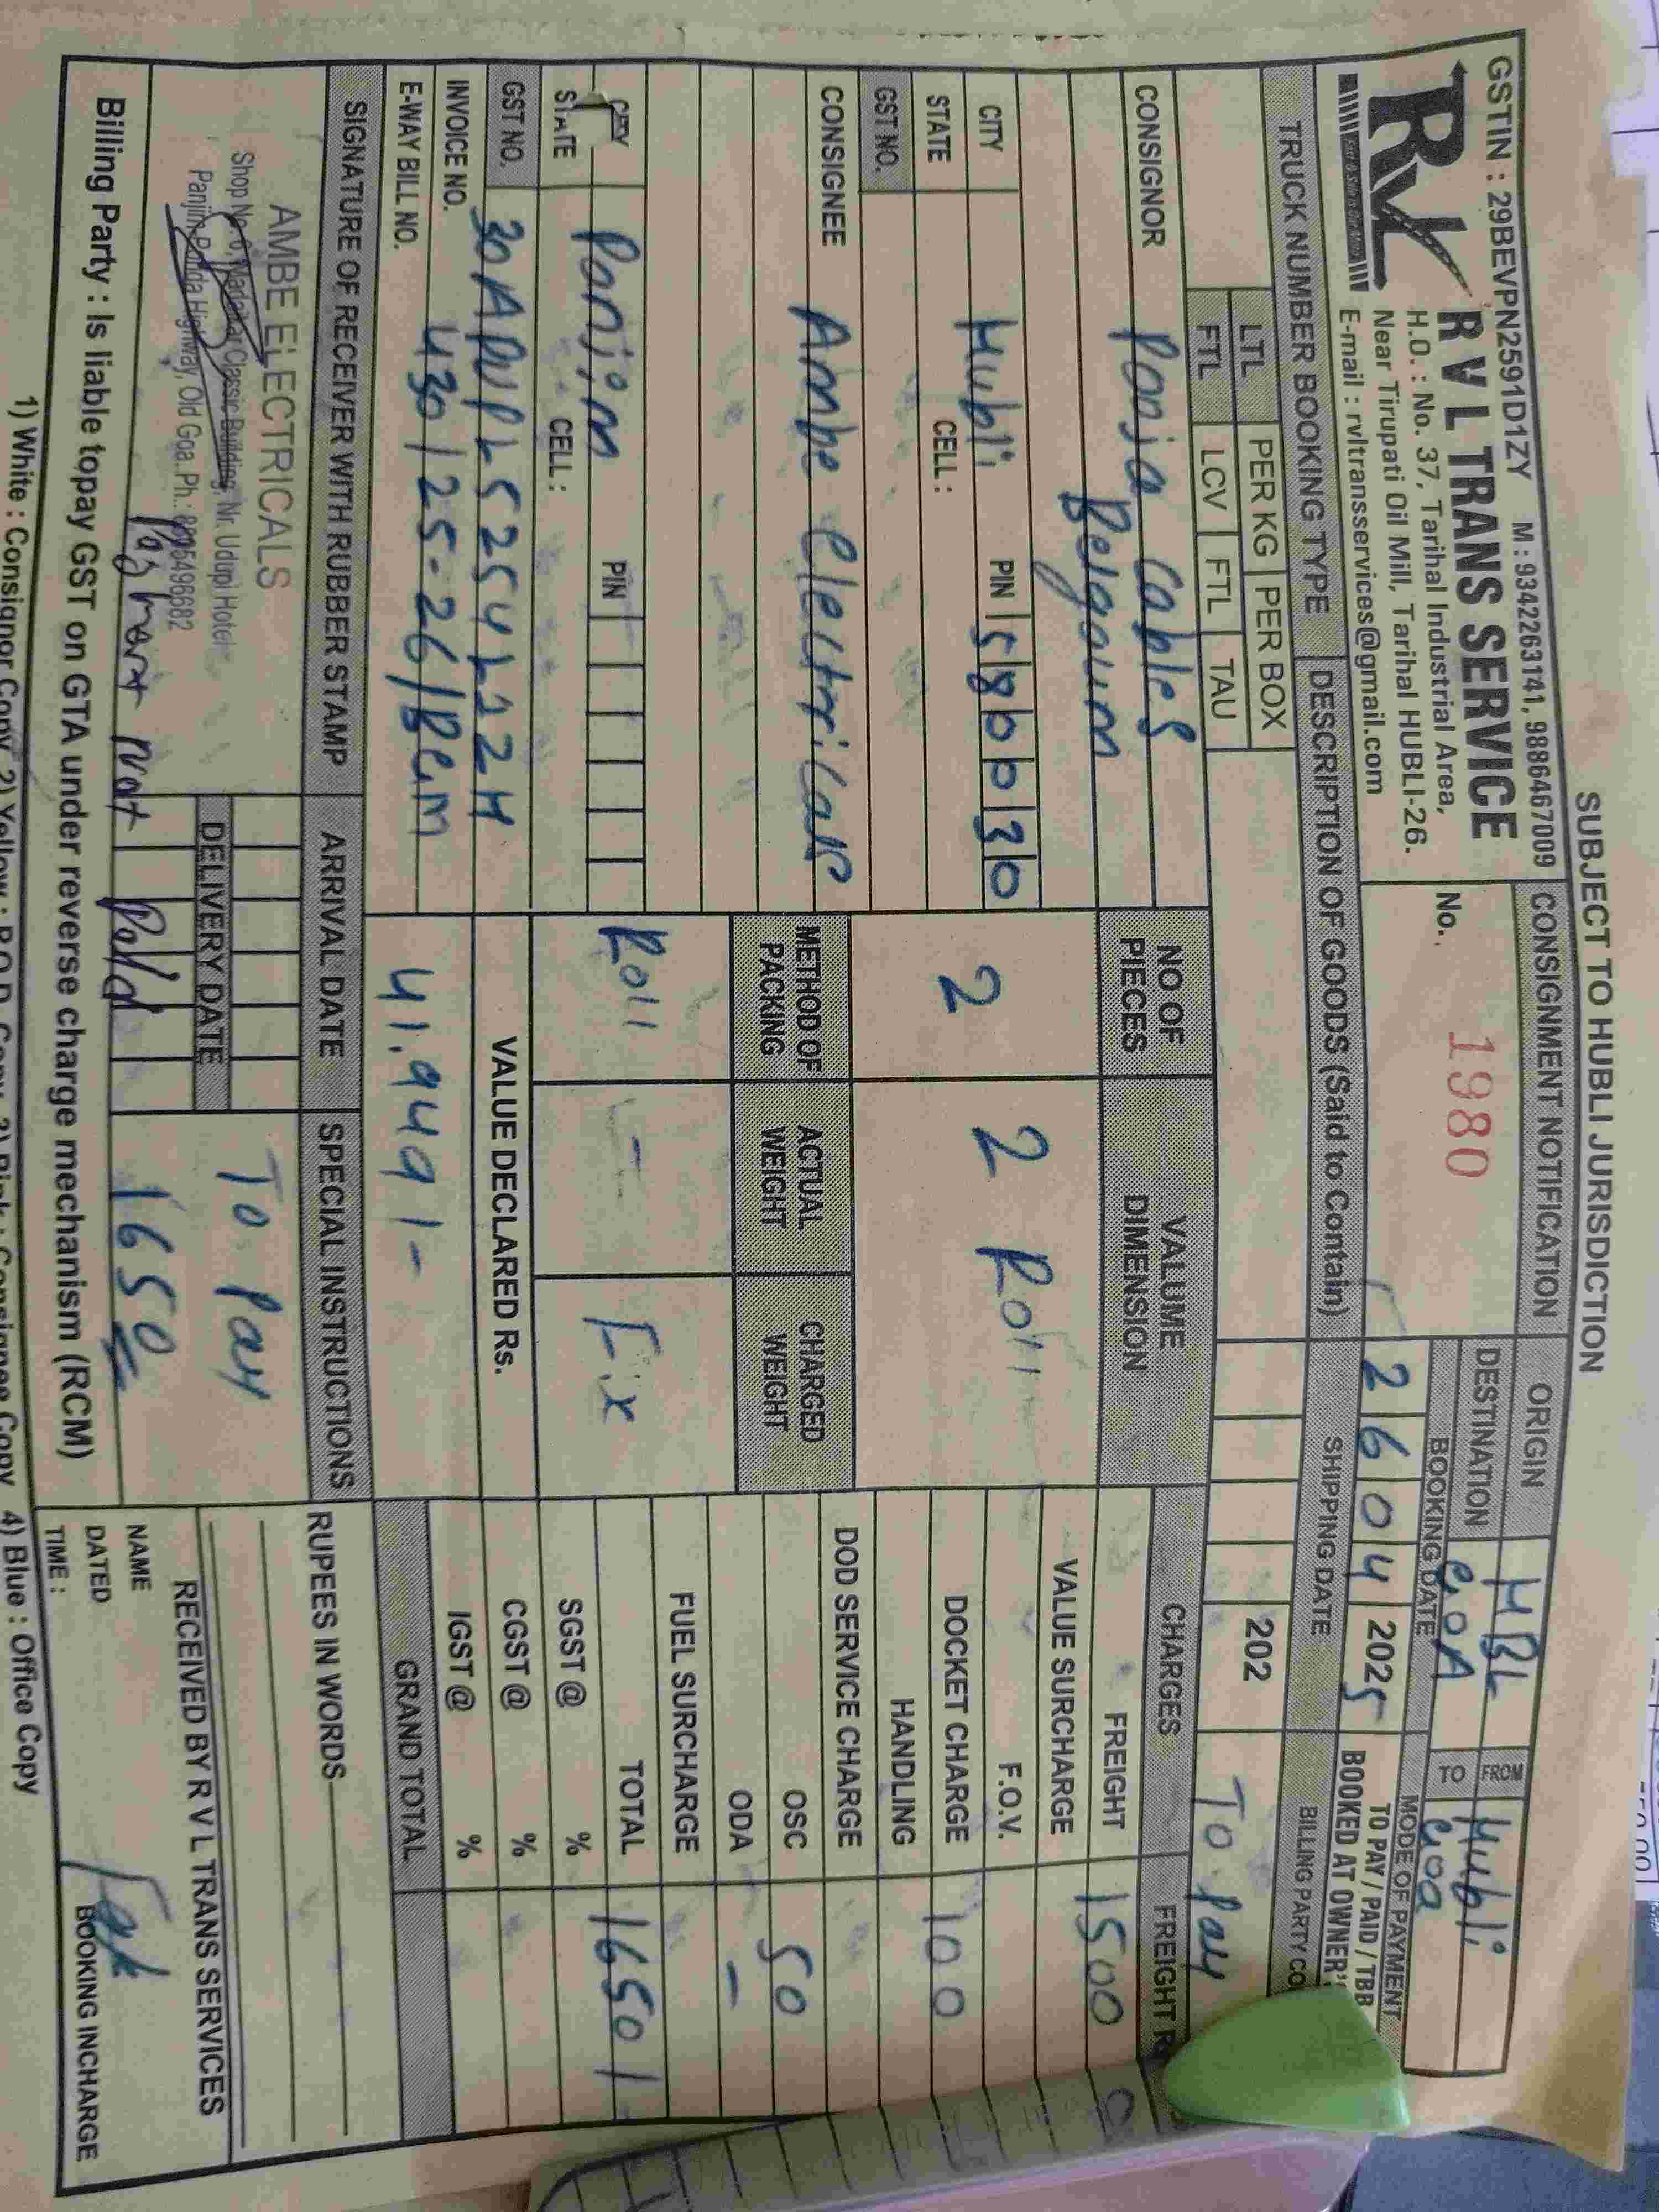 SUBJECT TO HUBLI JURISDICTION
GSTIN : 29BEVPN2591D1ZY M : 9342263141, 9886467009
RVL
R V L TRANS SERVICE
H.O. : No. 37, Tarihal Industrial Area,
Near Tirupati Oil Mill, Tarihal HUBLI-26.
E-mail : rvltransservices@gmail.com
CONSIGNMENT NOTIFICATION
No. 1980
ORIGIN HBL FROM Hubli
DESTINATION GOA TO Goa
BOOKING DATE
26 04 2025
MODE OF PAYMENT
TO PAY / PAID / TBB
BOOKED AT OWNER'
TRUCK NUMBER BOOKING TYPE DESCRIPTION OF GOODS (Said to Contain) SHIPPING DATE BILLING PARTY CO
LTL PER KG PER BOX 202 To Pay
FTL LCV FTL TAU
CONSIGNOR Ponja Cables
Belgaum
CITY Hubli PIN 580030
STATE CELL :
GST NO.
CONSIGNEE Ambe Electricals
CITY Panjim PIN
STATE CELL :
GST NO.
INVOICE NO. 430/25-26/BGM
E-WAY BILL NO.
NO OF PIECES VALUME DIMENSION
2 2 Roll
METHOD OF PACKING ACTUAL WEIGHT CHARGED WEIGHT
Roll - Fix
VALUE DECLARED Rs.
41.949/-
CHARGES FREIGHT
FREIGHT 1500
VALUE SURCHARGE
F.O.V.
DOCKET CHARGE 100
HANDLING
DOD SERVICE CHARGE
OSC 50
ODA -
FUEL SURCHARGE
TOTAL 1650/
SGST @ %
CGST @ %
IGST @ %
GRAND TOTAL
SIGNATURE OF RECEIVER WITH RUBBER STAMP ARRIVAL DATE SPECIAL INSTRUCTIONS
AMBE ELECTRICALS
Classic Building, Nr. Udupi Hotel
Panjim Ponda Highway, Old Goa. Ph.:
Payment not Paid
DELIVERY DATE
To Pay
1650
RUPEES IN WORDS
RECEIVED BY R V L TRANS SERVICES
NAME
DATED
TIME :
BOOKING INCHARGE
Billing Party : Is liable topay GST on GTA under reverse charge mechanism (RCM)
1) White : Consignor Copy 2) Yellow : P.O.D. Copy 3) Pink : Consignee Copy 4) Blue : Office Copy